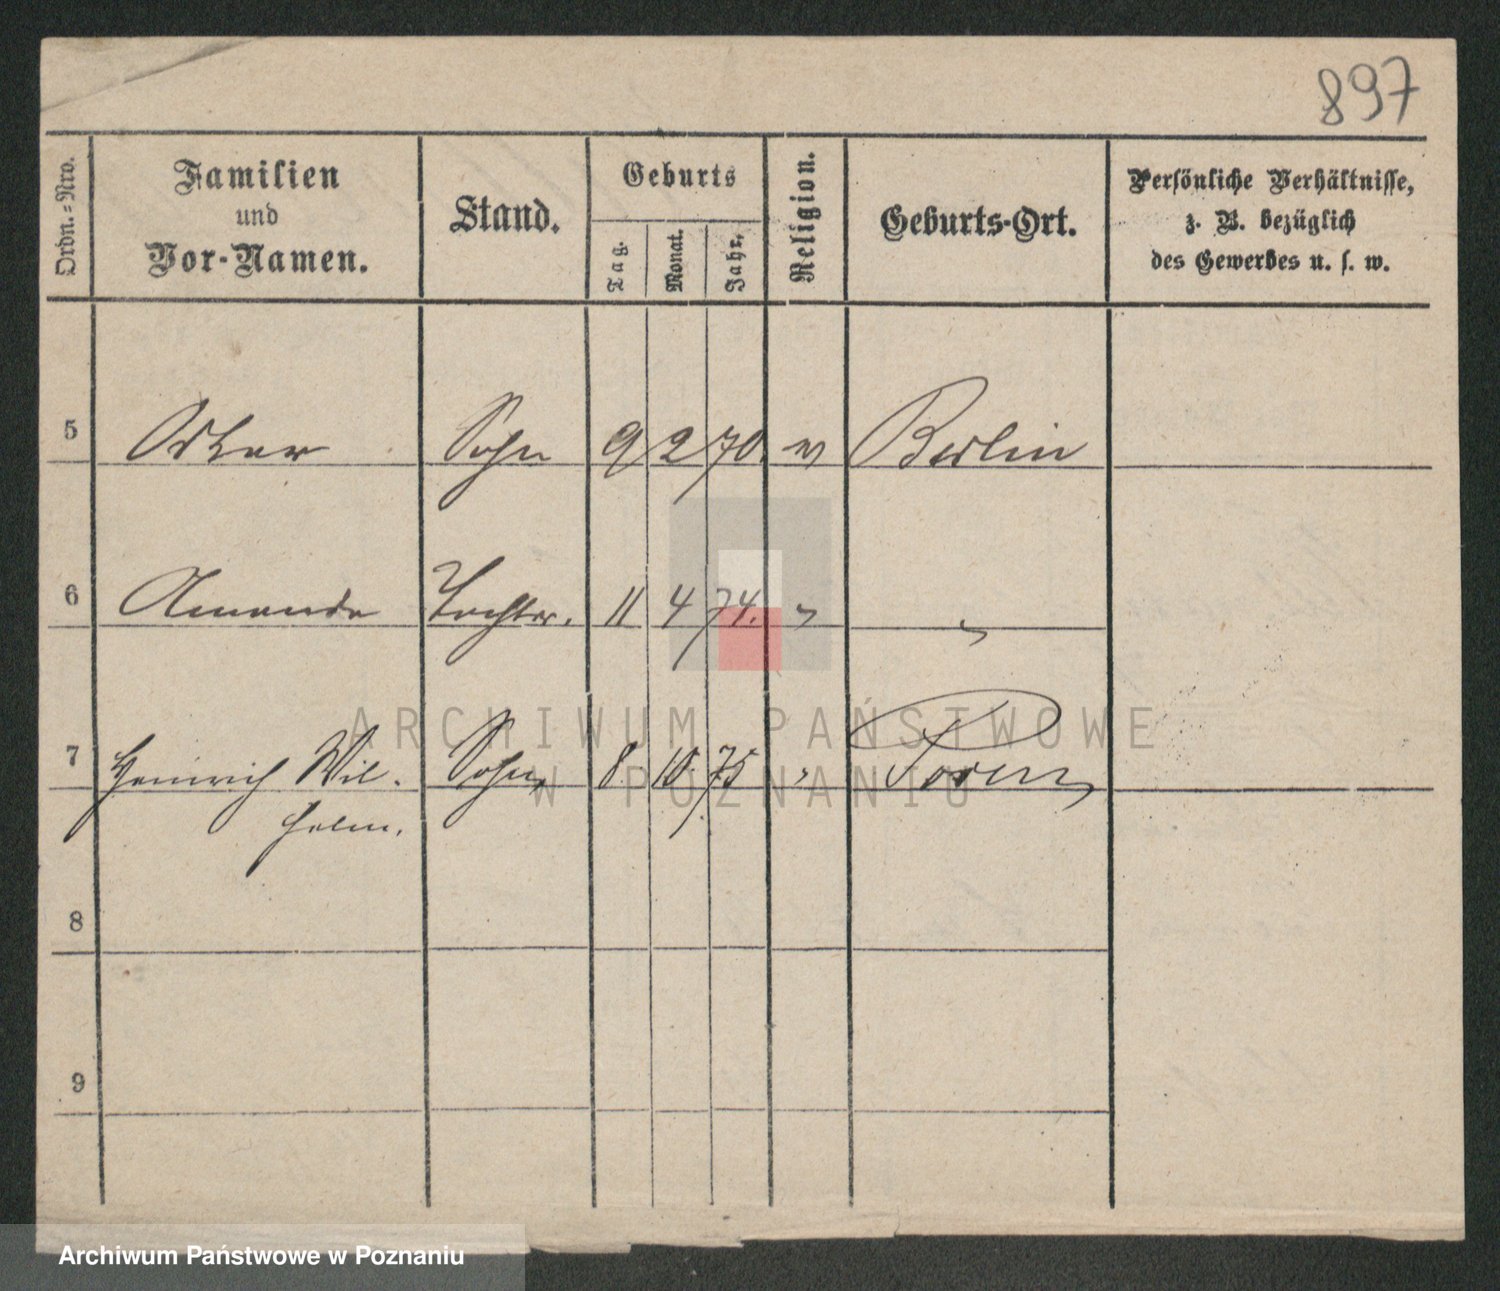 897
Ordn.-Nro.
Familien
und
Vor-Namen.
Stand.
Geburts
Tag.
Monat.
Jahr.
Religion.
Geburts-Ort.
Persönliche Verhältnisse,
z. B. bezüglich
des Gewerbes u. s. w.
5 Oskar Sohn 9 2 70. Berlin
6 Amanda Tochter. 11 4 74. " "
7 Heinrich Wil- Sohn 8 10 75 " Posen
helm.
8
9
ARCHIWUM PAŃSTWOWE
W POZNANIU
Archiwum Państwowe w Poznaniu